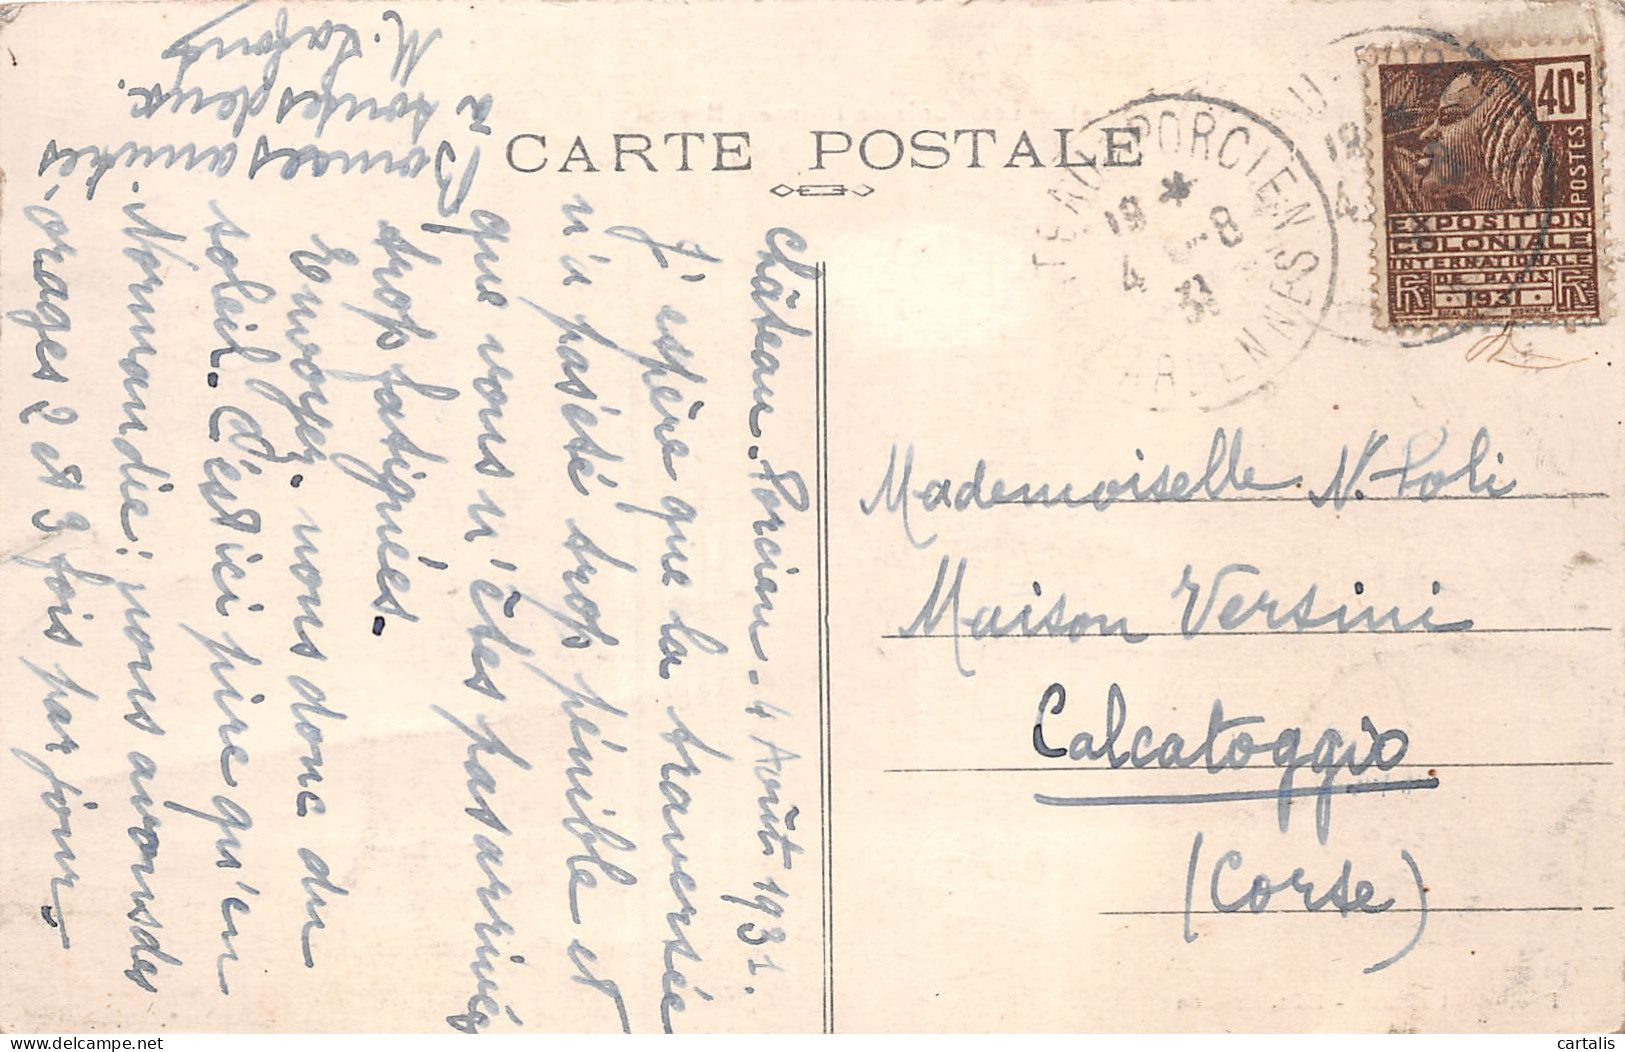 CARTE POSTALE
40c
POSTES
EXPOSITION
COLONIALE
INTERNATIONALE
DE PARIS
RF 1931 RF
PORCIEN
19 *
4 -8
31
ARDENNES
19
4
Château-Porcien - 4 Août 1931.
J'espère que la traversée
n'a pas été trop pénible et
que vous n'êtes pas arrivées
trop fatiguées.
Envoyez-nous donc du
soleil. C'est ici pire qu'en
Normandie: nous avons des
orages 2 et 3 fois par jour.
Bonnes amitiés
à toutes deux.
M. Lafont
Mademoiselle N. Poli
Maison Versini
Calcatoggio
(Corse)
cartalis
delcampe.net